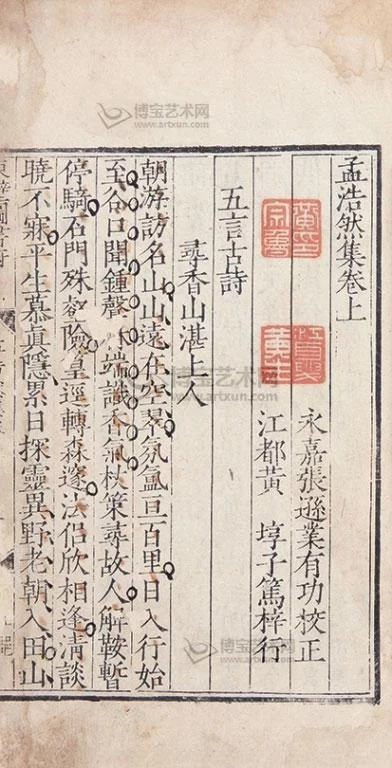 孟浩然集卷上
永嘉張遜業有功校正
江都黃埻子篤梓行
五言古詩
尋香山湛上人
朝游訪名山山遠在空翠氛氳亘百里日入行始
至谷口聞鍾聲林端識香氣杖策尋故人解鞍暫
停騎石門殊壑險篁逕轉森邃法侶欣相逢清談
曉不寐平生慕眞隱累日探靈異野老朝入田山
博宝艺术网
artxun.com
博宝艺术网
artxun.com
博宝艺术网
artxun.com